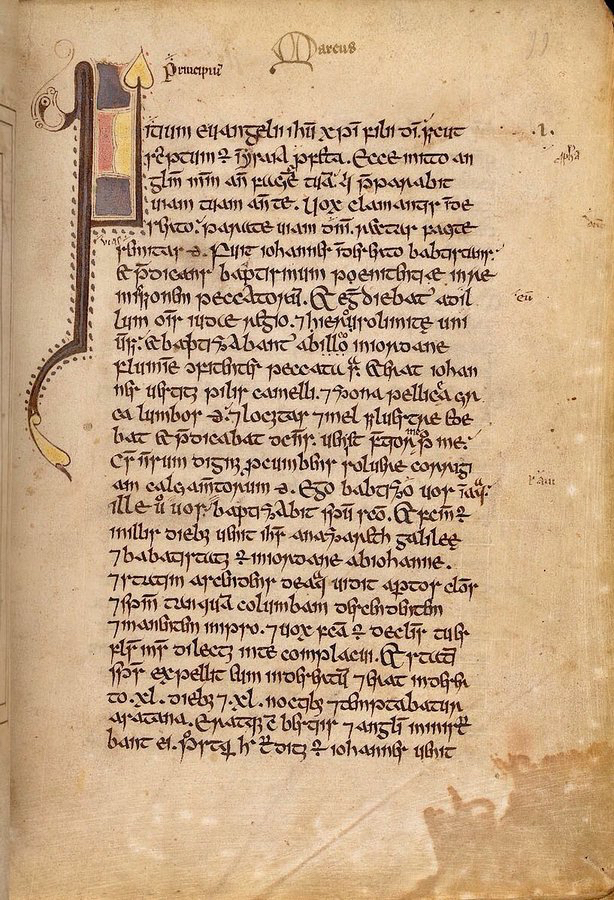 Marcus
Principiū
Initium euangelii ihū xpī filii dī. sicut
scriptum ÷ in ysaia pfēta. Ecce mitto an
glm̄ mm̄ an̄ faciē tuā. q̄ p̄parabit
uiam tuam an̄ te. Uox clamantis in de
serto. parate uiam dnī. rectas facite
semitas ei. Fuit iohannes in deserto babtizans
& p̄dicans baptismum poenitentiae in re
missionem peccatorū. Et egdiebat̄ ad il
lum om̄s iudee regio. ⁊ hierosolimite uni
uersi: & baptizabant̄ ab illo in iordane
flumine ɔfitentes peccata sua. & erat iohan
nes uestitus pilis camelli. ⁊ zona pellicia cir
ca lumbos ei ⁊ locustas ⁊ mel siluestre ede
bat & p̄dicabat dicens. uenit fortior me p̄ me.
cs̄ n̄ sum dignus pcumbens soluere corrigi
am calciam̄torum ei. Ego babtizo uos in aq̄
ille uº uos baptizabit sp̄u scō. Et fcm̄ ÷
in illis diebꝫ uenit ihs̄ a nazareth galilee
⁊ babatistus ÷ in iordane ab iohanne.
⁊ statim ascendens de aqa uidit aptos celos
⁊ sp̄m tanquā columbam descendentem
⁊ manentem in ipso. ⁊ uox fcā ÷ de celis tu es
fls̄ ms̄ dilectꝫ in te complacui. Et statī
sp̄s expellit eum in desertū ⁊ erat in deser
to .xl. diebꝫ ⁊ .xl. noctibꝫ ⁊ temptabatur
a satana. Eratqꝫ c̄ bestiis ⁊ angl̄i minist̄
bant ei. Post q̄ h̄ traditꝫ ÷ iohannes uenit